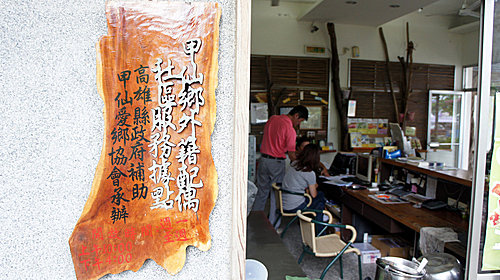 甲仙鄉外籍配偶
社區服務據點
高雄縣政府補助
甲仙愛鄉協會承辦